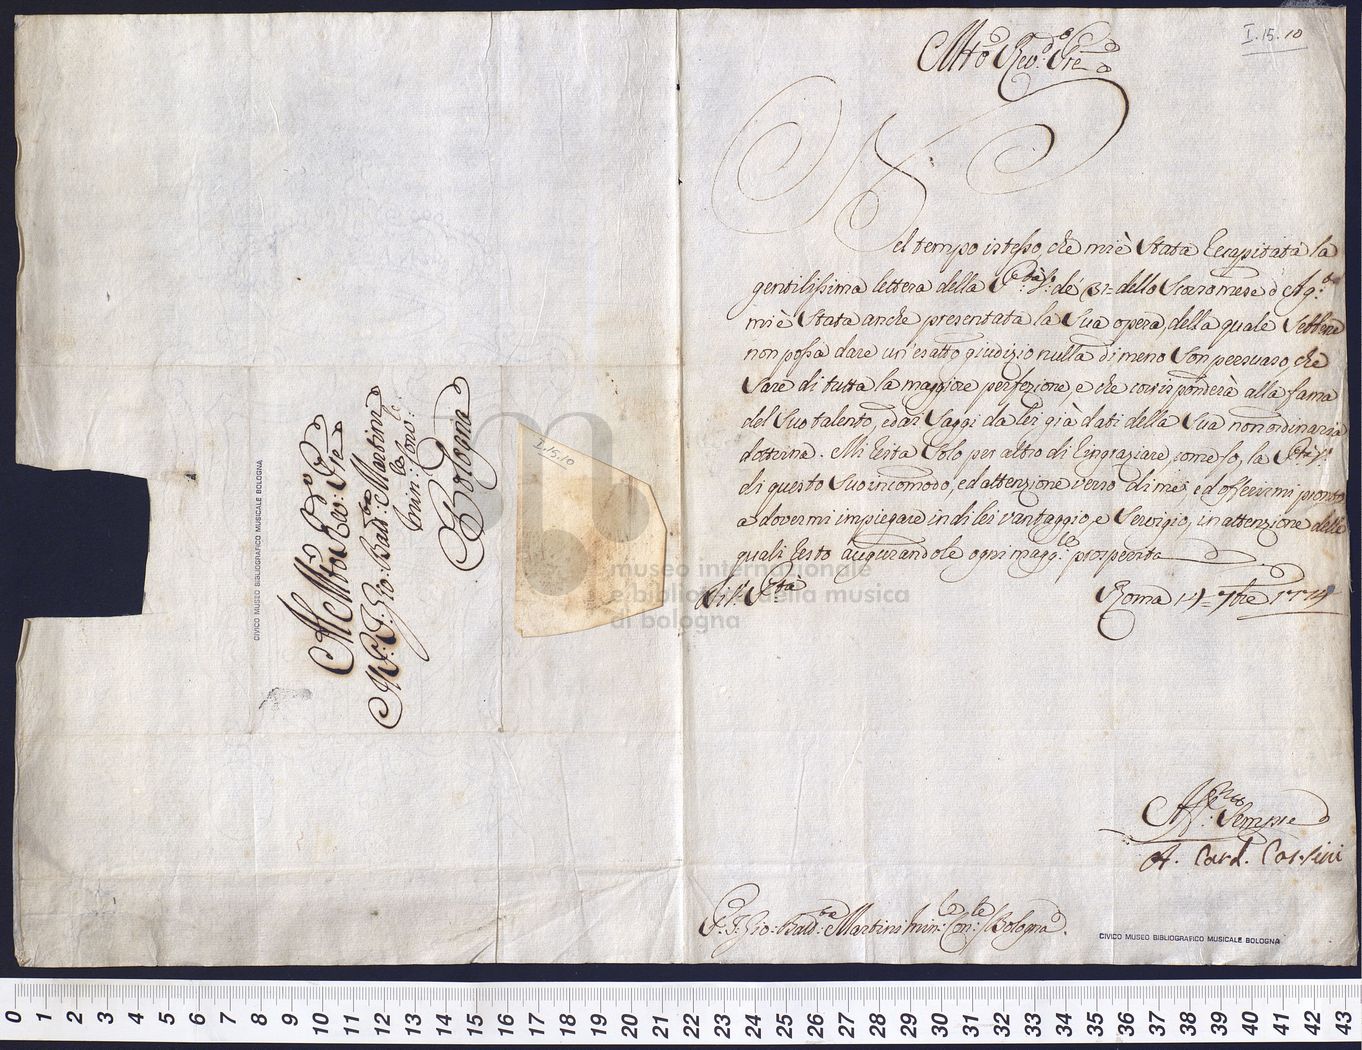 I.15.10
Al Mto Revdo Pre
Mro F. Gio: Batta Martini
Min: le Conle
Bologna
I.15.10
CIVICO MUSEO BIBLIOGRAFICO MUSICALE BOLOGNA
Mto Revdo Pre
Nel tempo istesso, che mi è stata recapitata la
gentilissima lettera della Ptà Va de' 31= dello scorso mese d' Agto
mi è stata anche presentata la sua opera, della quale sebbene
non possa dare un' esatto giudizio nulla di meno son persuaso, che
sarà di tutta la maggiore perfezione e che corrisponderà alla fama
del suo talento, ed ai saggi da lei già dati della sua non ordinaria
dottrina. Mi resta solo per altro di ringraziare, come fo, la Ptà Va
di questo suo incomodo, ed attenzione verso di me, ed offerirmi pronto
a dovermi impiegare in di lei vantaggio, e servigio, in attenzione delle
quali resto augurandole ogni maggle prosperità
Di Va Ptà
Roma 14= 7bre 1774
Affmo Sempre
A. Card. Corsini
P. F. Gio: Batta Martini Min: le Con:le Bologna.
CIVICO MUSEO BIBLIOGRAFICO MUSICALE BOLOGNA
museo internazionale
e biblioteca della musica
di bologna
0 1 2 3 4 5 6 7 8 9 10 11 12 13 14 15 16 17 18 19 20 21 22 23 24 25 26 27 28 29 30 31 32 33 34 35 36 37 38 39 40 41 42 43